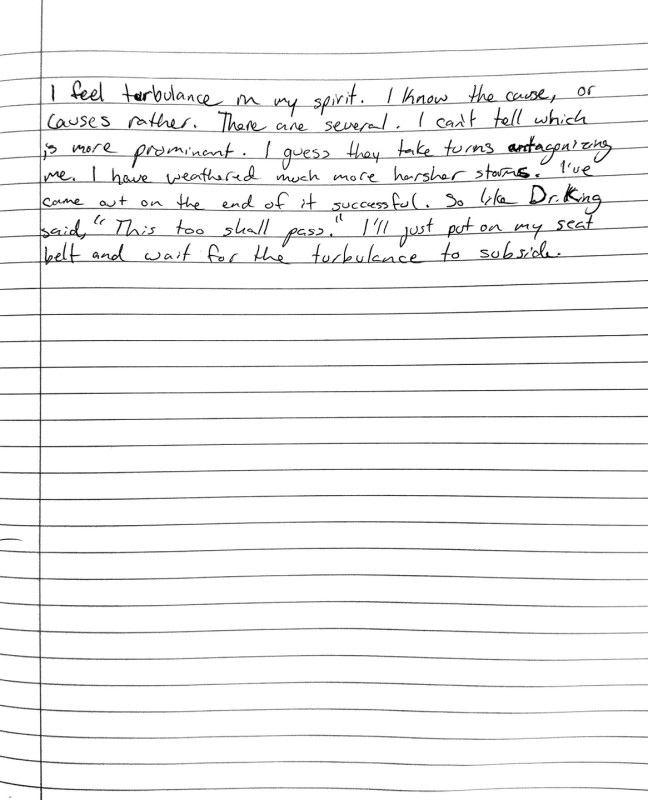 I feel turbulance in my spirit. I know the cause, or
causes rather. There are several. I can't tell which
is more prominant. I guess they take turns antagonizing
me. I have weathered much more harsher storms. I've
came out on the end of it successful. So like Dr. King
said, "This too shall pass." I'll just put on my seat
belt and wait for the turbulance to subside.